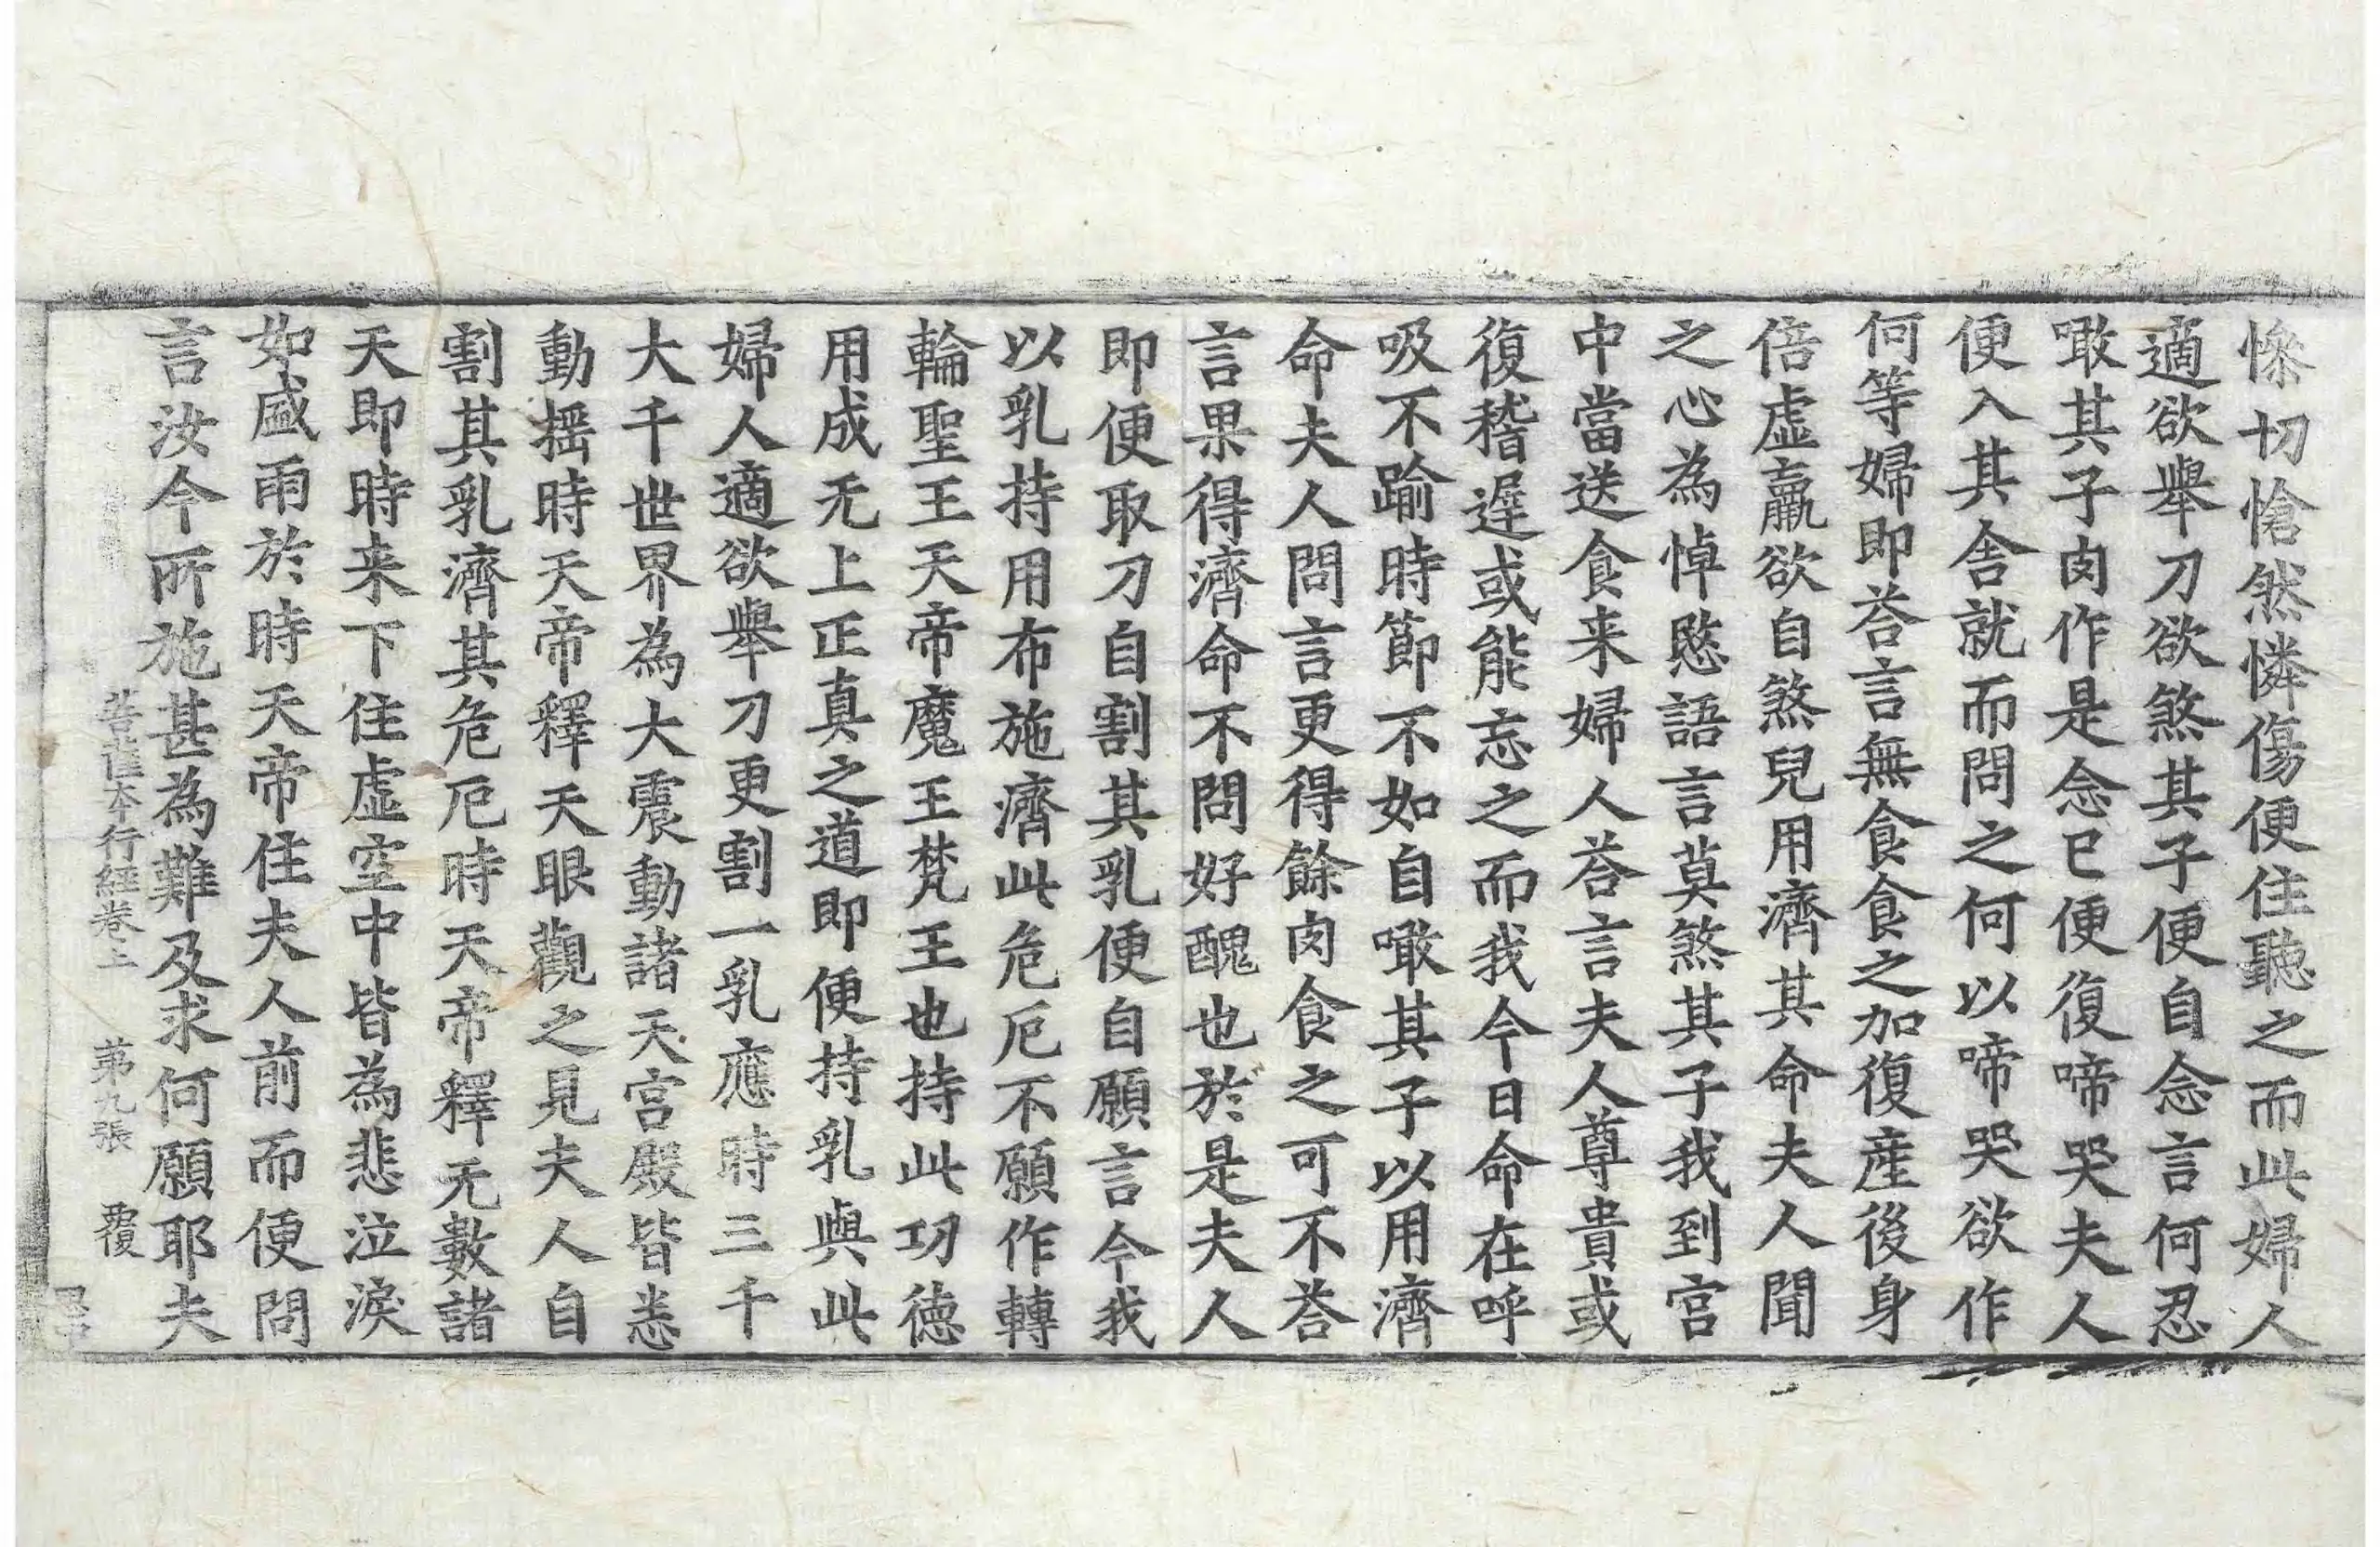 慘切愴然憐傷便住聽之而此婦人
適欲舉刀欲煞其子便自念言何忍
噉其子肉作是念已便復啼哭夫人
便入其舍就而問之何以啼哭欲作
何等婦即荅言無食食之加復產後身
倍虛羸欲自煞兒用濟其命夫人聞
之心為悼愍語言莫煞其子我到宮
中當送食来婦人荅言夫人尊貴或
復稽遲或能忘之而我今日命在呼
吸不踰時節不如自噉其子以用濟
命夫人問言更得餘肉食之可不荅
言果得濟命不問好醜也於是夫人
即便取刀自割其乳便自願言今我
以乳持用布施濟此危厄不願作轉
輪聖王天帝魔王梵王也持此功德
用成无上正真之道即便持乳與此
婦人適欲舉刀更割一乳應時三千
大千世界為大震動諸天宮殿皆悉
動搖時天帝釋天眼觀之見夫人自
割其乳濟其危厄時天帝釋无數諸
天即時来下住虛空中皆為悲泣淚
如盛雨於時天帝住夫人前而便問
言汝今所施甚為難及求何願耶夫
菩薩本行經卷上 第九張 覆